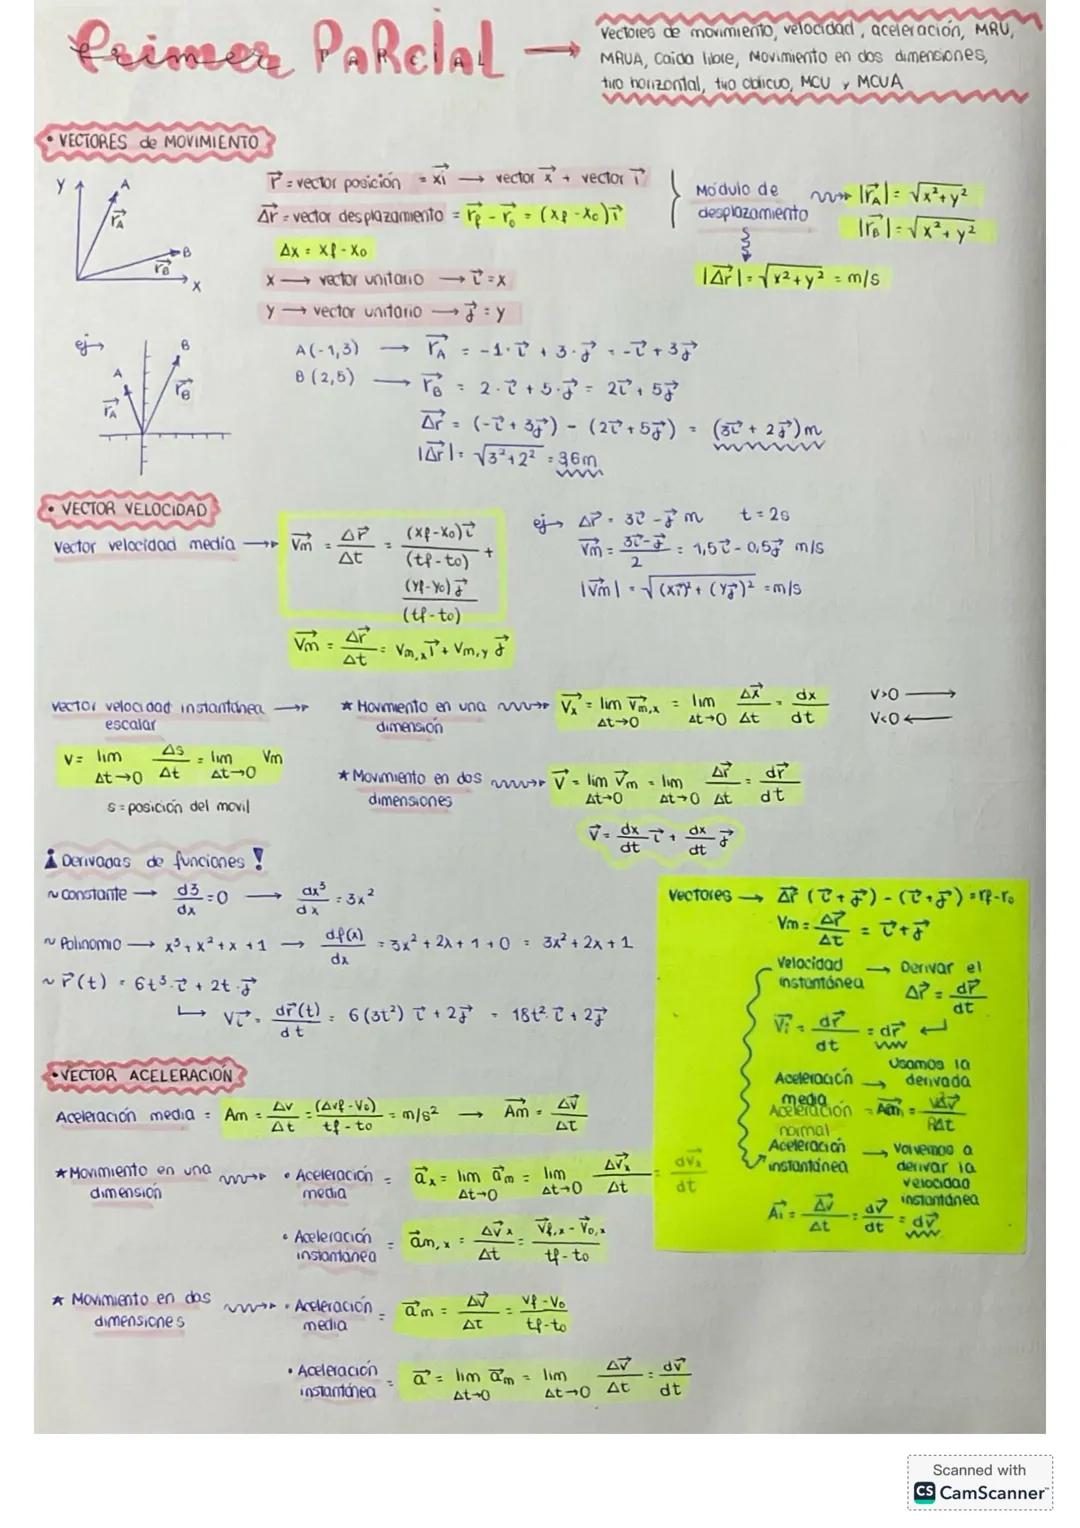 Primer Parcial
PARCIAL
→ Vectores de movimiento, velocidad, aceleración, MRU,
MRUA, caida libre, Movimiento en dos dimensiones,
tiro horizontal, tiro oblicuo, MCU y MCUA
• VECTORES de MOVIMIENTO
Y A r⃗A B r⃗B X
r⃗ = vector posición = xi⃗ → vector x⃗ + vector i⃗
Δr⃗ = vector desplazamiento = r⃗f - r⃗o = (xf - xo)i⃗
Δx = xf - xo
x → vector unitario → i⃗ = x
y → vector unitario → j⃗ = y
Modulo de desplazamiento
|r⃗A| = √x²+y²
|r⃗B| = √x²+y²
|Δr⃗| = √x²+y² = m/s
ej→ A r⃗A B r⃗B
A(-1,3) → r⃗A = -1·i⃗ + 3·j⃗ = -i⃗ + 3j⃗
B(2,5) → r⃗B = 2·i⃗ + 5·j⃗ = 2i⃗ + 5j⃗
Δr⃗ = (-i⃗ + 3j⃗) - (2i⃗ + 5j⃗) = (3i⃗ + 2j⃗)m
|Δr⃗| = √3²+2² = 3,6m
• VECTOR VELOCIDAD
Vector velocidad media → V⃗m = Δr⃗/Δt = (xf-xo)i⃗/(tf-to) + (yf-yo)j⃗/(tf-to)
V⃗m = Δr⃗/Δt = Vm,x i⃗ + Vm,y j⃗
ej→ Δr⃗ = 3i⃗ - j⃗ m t = 2s
V⃗m = 3i⃗-j⃗/2 = 1,5i⃗ - 0,5j⃗ m/s
|V⃗m| = √(xi⃗)² + (yj⃗)² = m/s
vector velocidad instantánea →
escalar
V = lim Δt→0 Δs/Δt = lim Δt→0 Vm
s = posición del movil
★ Movimiento en una dimensión V⃗x = lim Δt→0 V⃗m,x = lim Δt→0 Δx⃗/Δt = dx/dt
V>0 →
V<0 ←
★ Movimiento en dos dimensiones V⃗ = lim Δt→0 V⃗m = lim Δt→0 Δr⃗/Δt = dr⃗/dt
V⃗ = dx/dt i⃗ + dx/dt j⃗
¡ Derivadas de funciones !
~ constante → d3/dx = 0 → dx³/dx = 3x²
~ Polinomio → x³ + x² + x + 1 → df(x)/dx = 3x² + 2x + 1 + 0 = 3x² + 2x + 1
~ r⃗(t) = 6t³·i⃗ + 2t·j⃗
↳ Vi⃗ = dr⃗(t)/dt = 6(3t²)i⃗ + 2j⃗ = 18t²·i⃗ + 2j⃗
Vectores → Δr⃗ (i⃗+j⃗) - (i⃗+j⃗) = rf - ro
Vm = Δr⃗/Δt = i⃗+j⃗
Velocidad instantánea → Derivar el
Δr⃗ = dr⃗/dt
V⃗i = dr⃗/dt = dr⃗
Aceleración media → Usamos la derivada
Aceleración normal
Aceleración instantánea → Volvemos a derivar la velocidad instantánea
A⃗i = Δv⃗/Δt = dv⃗/dt = dv⃗
• VECTOR ACELERACION
Aceleración media = Am = Δv/Δt = (Δvf-Vo)/tf-to = m/s² → A⃗m = Δv⃗/Δt
★ Movimiento en una dimensión • Aceleración media = a⃗x = lim Δt→0 a⃗m = lim Δt→0 Δv⃗x/Δt = dv⃗x/dt
• Aceleración instantánea = a⃗m,x = Δv⃗x/Δt = V⃗f,x - V⃗o,x/tf-to
★ Movimiento en dos dimensiones • Aceleración media = a⃗m = Δv⃗/Δt = vf-vo/tf-to
• Aceleración instantánea = a⃗ = lim Δt→0 a⃗m = lim Δt→0 Δv⃗/Δt = dv⃗/dt
Scanned with
CS CamScanner